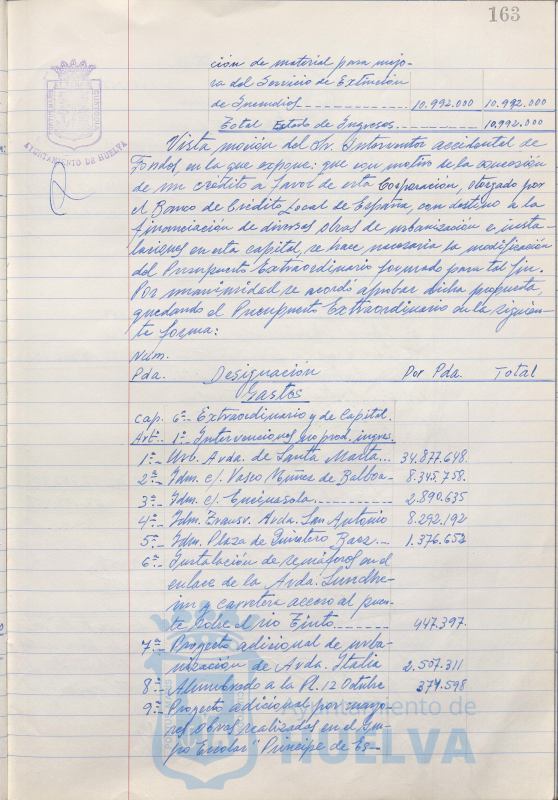 163
ción de material para mejo-
ra del Servicio de Extinción
de Incendios 10.992.000 10.992.000
Total Estado de Ingresos 10.992.000
AYUNTAMIENTO DE HUELVA
Vista moción del Sr. Interventor accidental de
Fondos, en la que expone: que con motivo de la concesión
de un crédito a favor de esta Corporación, otorgado por
el Banco de Crédito Local de España, con destino a la
financiación de diversas obras de urbanización e insta-
laciones en esta capital, se hace necesaria la modificación
del Presupuesto Extraordinario formado para tal fin.
Por unanimidad se acordó aprobar dicha propuesta,
quedando el Presupuesto Extraordinario en la siguien-
te forma:
Num.
Pda. Designación Por Pda. Total
Gastos
Cap. 6º- Extraordinario y de Capital.
Artº. 1º- Intervenciones no prod. ingres.
1ª- Urb. Avda. de Santa Marta... 34.877.648.
2ª- Idm. c/. Vasco Núñez de Balboa- 8.345.758.
3ª- Idm. c/. Encinasola 2.890.635
4ª- Idm. Transv. Avda. San Antonio 8.292.192
5ª- Idm. Plaza de Quintero Baez 1.376.652
6ª- Instalación de semáforos en el
enlace de la Avda. Sundhe-
im y carretera acceso al puen-
te sobre el río Tinto 447.397.
7ª- Proyecto adicional de urba-
nización de Avda. Italia 2.507.311
8ª- Alumbrado a la Pl. 12 Octubre 374.598
9ª- Proyecto adicional por mayo-
res obras realizadas en el Gru-
po Escolar "Príncipe de Es-
Ayuntamiento de
HUELVA